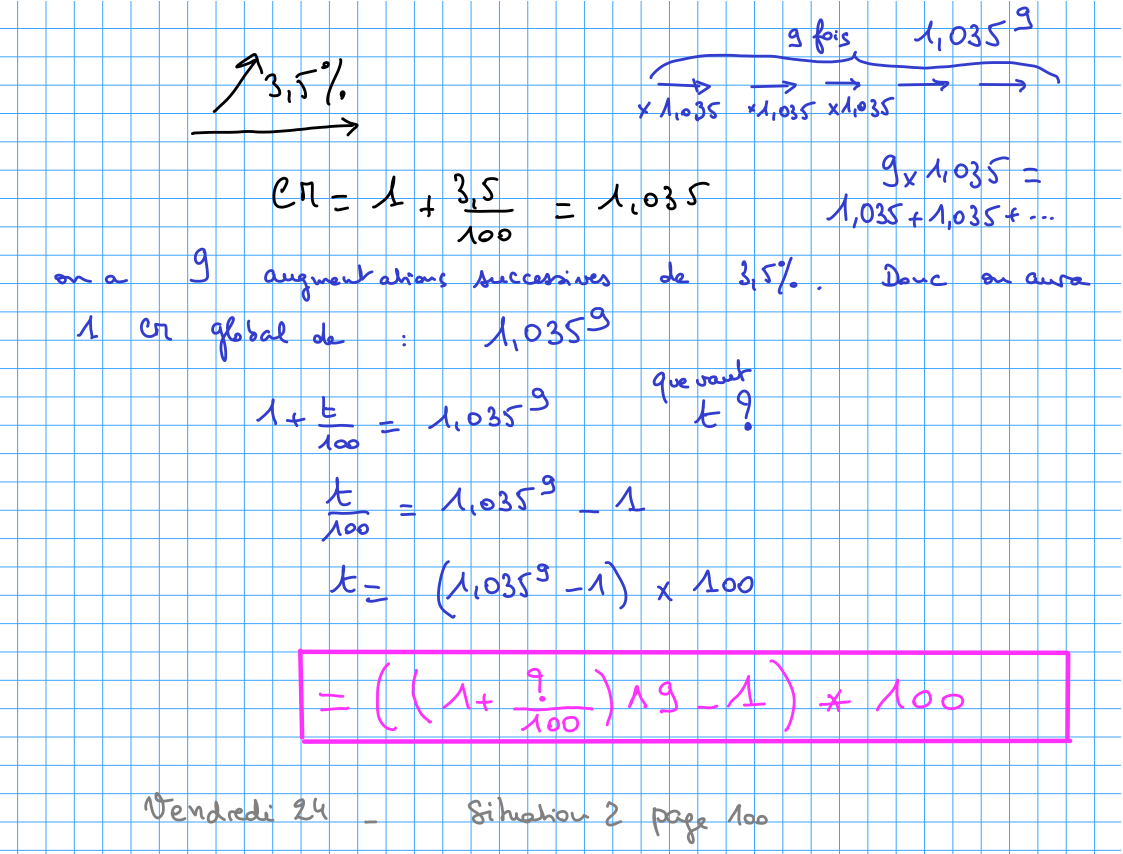 9 fois 1,035⁹
3,5%
× 1,035 ×1,035 ×1,035
CM = 1 + 3,5/100 = 1,035
9 × 1,035 =
1,035 + 1,035 + ...
on a 9 augmentations successives de 3,5%. Donc on aura
1 CM global de : 1,035⁹
1 + t/100 = 1,035⁹
que vaut
t ?
t/100 = 1,035⁹ - 1
t = (1,035⁹ - 1) × 100
= ((1 + ?/100) ^ 9 - 1) * 100
Vendredi 24 - Situation 2 page 100